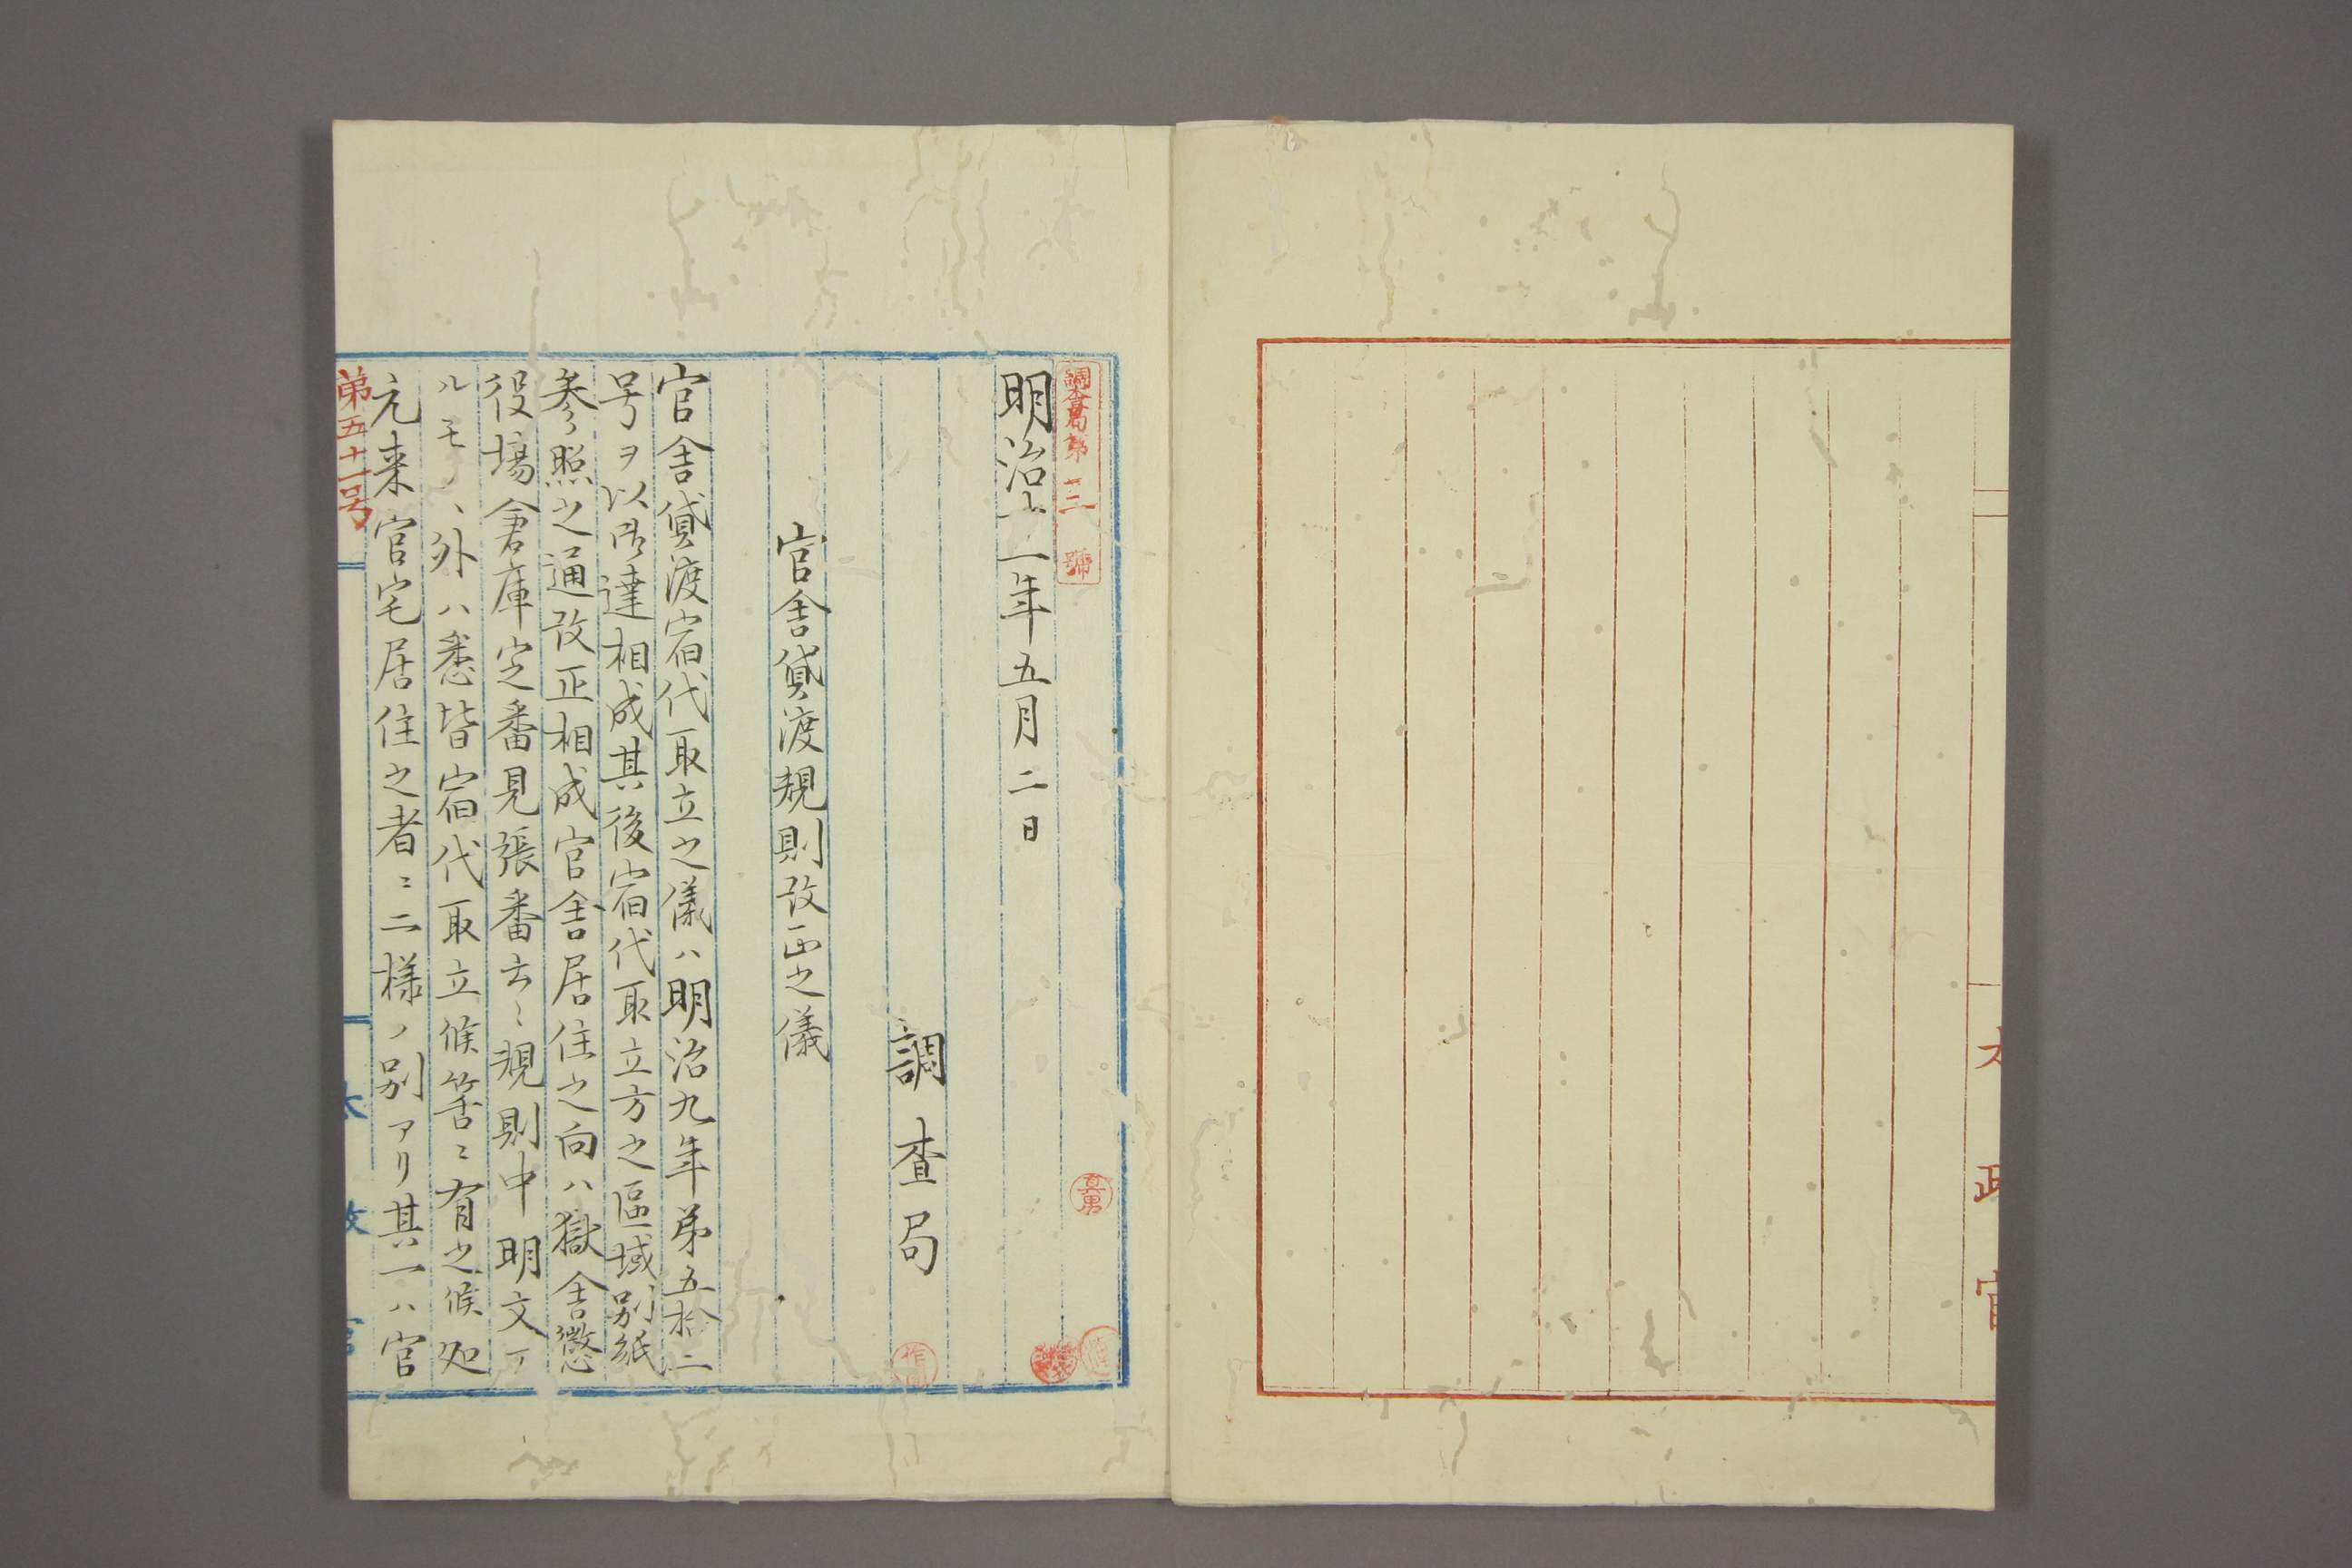 太政官
調査局第三號
明治十一年五月二日
調査局
官舎貸渡規則改正之儀
官舎貸渡宿代取立之儀ハ明治九年第五拾二
号ヲ以御達相成其後宿代取立方之區域別紙
参照之通改正相成官舎居住之向ハ獄舎懲
役場倉庫定番見張番云々規則中明文ア
ルモノヽ外ハ悉皆宿代取立候筈ニ有之候処
元来官宅居住之者ニ二様ノ別アリ其一ハ官
第五十一号
太政官